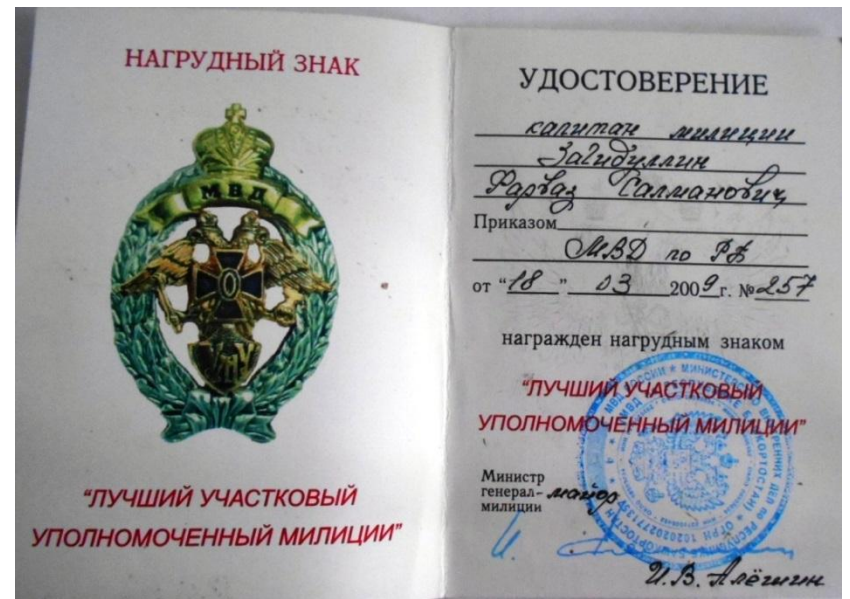 НАГРУДНЫЙ ЗНАК
МВД
"ЛУЧШИЙ УЧАСТКОВЫЙ
УПОЛНОМОЧЕННЫЙ МИЛИЦИИ"
УДОСТОВЕРЕНИЕ
капитан милиции
Загидуллин
Фарваз Салманович
Приказом
МВД по РБ
от "18" 03 2009 г. № 257
награжден нагрудным знаком
"ЛУЧШИЙ УЧАСТКОВЫЙ
УПОЛНОМОЧЕННЫЙ МИЛИЦИИ"
Министр
генерал-майор
милиции
И.В. Алёшин